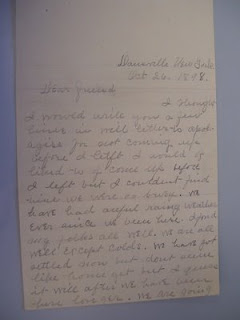 Dansville New York
Oct 26. 1898.
Dear Friend
I thought
I would write you a few
lines as well
for not coming up
before I left I would of
liked to of come up before
I left but I couldent find
time we were so busy. We
have had awful rainy weather
ever since we been here. I found
my folks all well. We are all
well except colds. We have got
settled down but dont seem
like home yet but I guess
it will after we have been
here longer. We are going